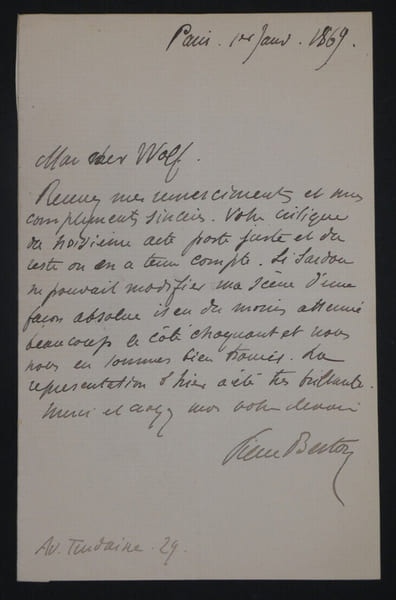 Paris. 1er Janv. 1869.
Mon cher Wolf.
Recevez mes remerciments et mes
compliments sincères. Votre critique
du troisième acte porte juste et du
reste on en a tenu compte. Si Sardou
ne pouvait modifier ma scène d'une
façon absolue il en a du moins atténué
beaucoup le côté choquant et nous
nous en sommes bien trouvés. La
représentation d'hier a été très brillante.
Merci et croyez moi votre dévoué
Pierre Berton
Av. Trudaine. 29.